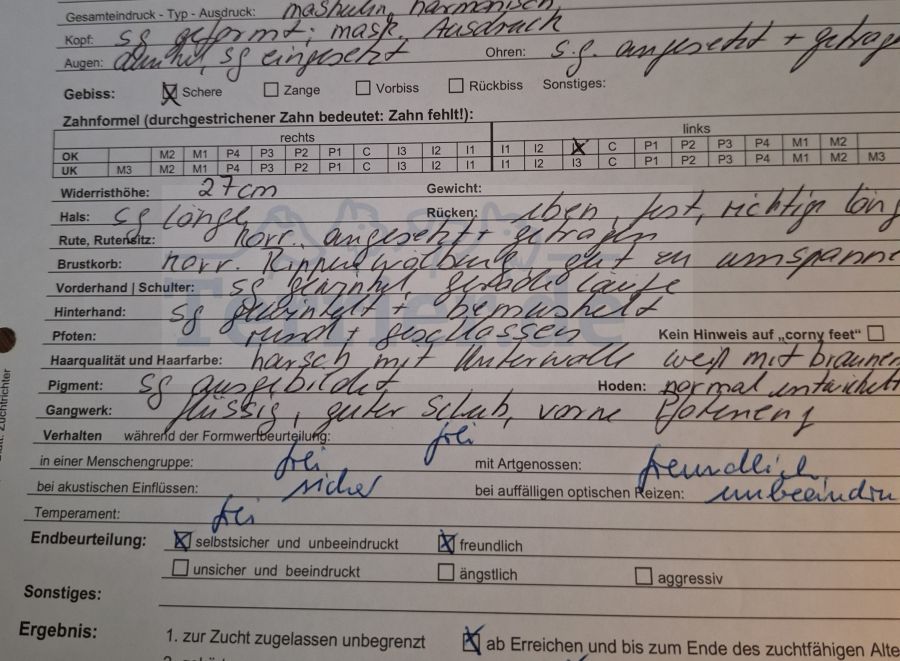 Gesamteindruck - Typ - Ausdruck: maskulin, harmonisch
Kopf: sg geformt; mask. Ausdruck
Augen: dunkel, sg eingesetzt Ohren: s.g. angesetzt + getrage
Gebiss: Schere Zange Vorbiss Rückbiss Sonstiges:
Zahnformel (durchgestrichener Zahn bedeutet: Zahn fehlt!):
rechts links
OK M2 M1 P4 P3 P2 P1 C I3 I2 I1 I1 I2 I3 C P1 P2 P3 P4 M1 M2
UK M3 M2 M1 P4 P3 P2 P1 C I3 I2 I1 I1 I2 I3 C P1 P2 P3 P4 M1 M2 M3
Widerristhöhe: 27cm Gewicht:
Hals: sg Länge Rücken: eben, fest, richtige Läng
Rute, Rutensitz: korr. angesetzt + getragen
Brustkorb: korr. Rippenwölbung, gut zu umspanne
Vorderhand | Schulter: sg gewinkelt, gerade Läufe
Hinterhand: sg gewinkelt + bemuskelt
Pfoten: rund + geschlossen Kein Hinweis auf „corny feet“
Haarqualität und Haarfarbe: harsch mit Unterwolle weiß mit braunen
Pigment: sg ausgebildet Hoden: normal entwickelt
Gangwerk: flüssig, guter Schub, vorne
Verhalten während der Formwertbeurteilung: frei
in einer Menschengruppe: frei mit Artgenossen: freundlich
bei akustischen Einflüssen: sicher bei auffälligen optischen Reizen: unbeeindru
Temperament: frei
Endbeurteilung: selbstsicher und unbeeindruckt freundlich
unsicher und beeindruckt ängstlich aggressiv
Sonstiges:
Ergebnis: 1. zur Zucht zugelassen unbegrenzt ab Erreichen und bis zum Ende des zuchtfähigen Alte
Terrier.de